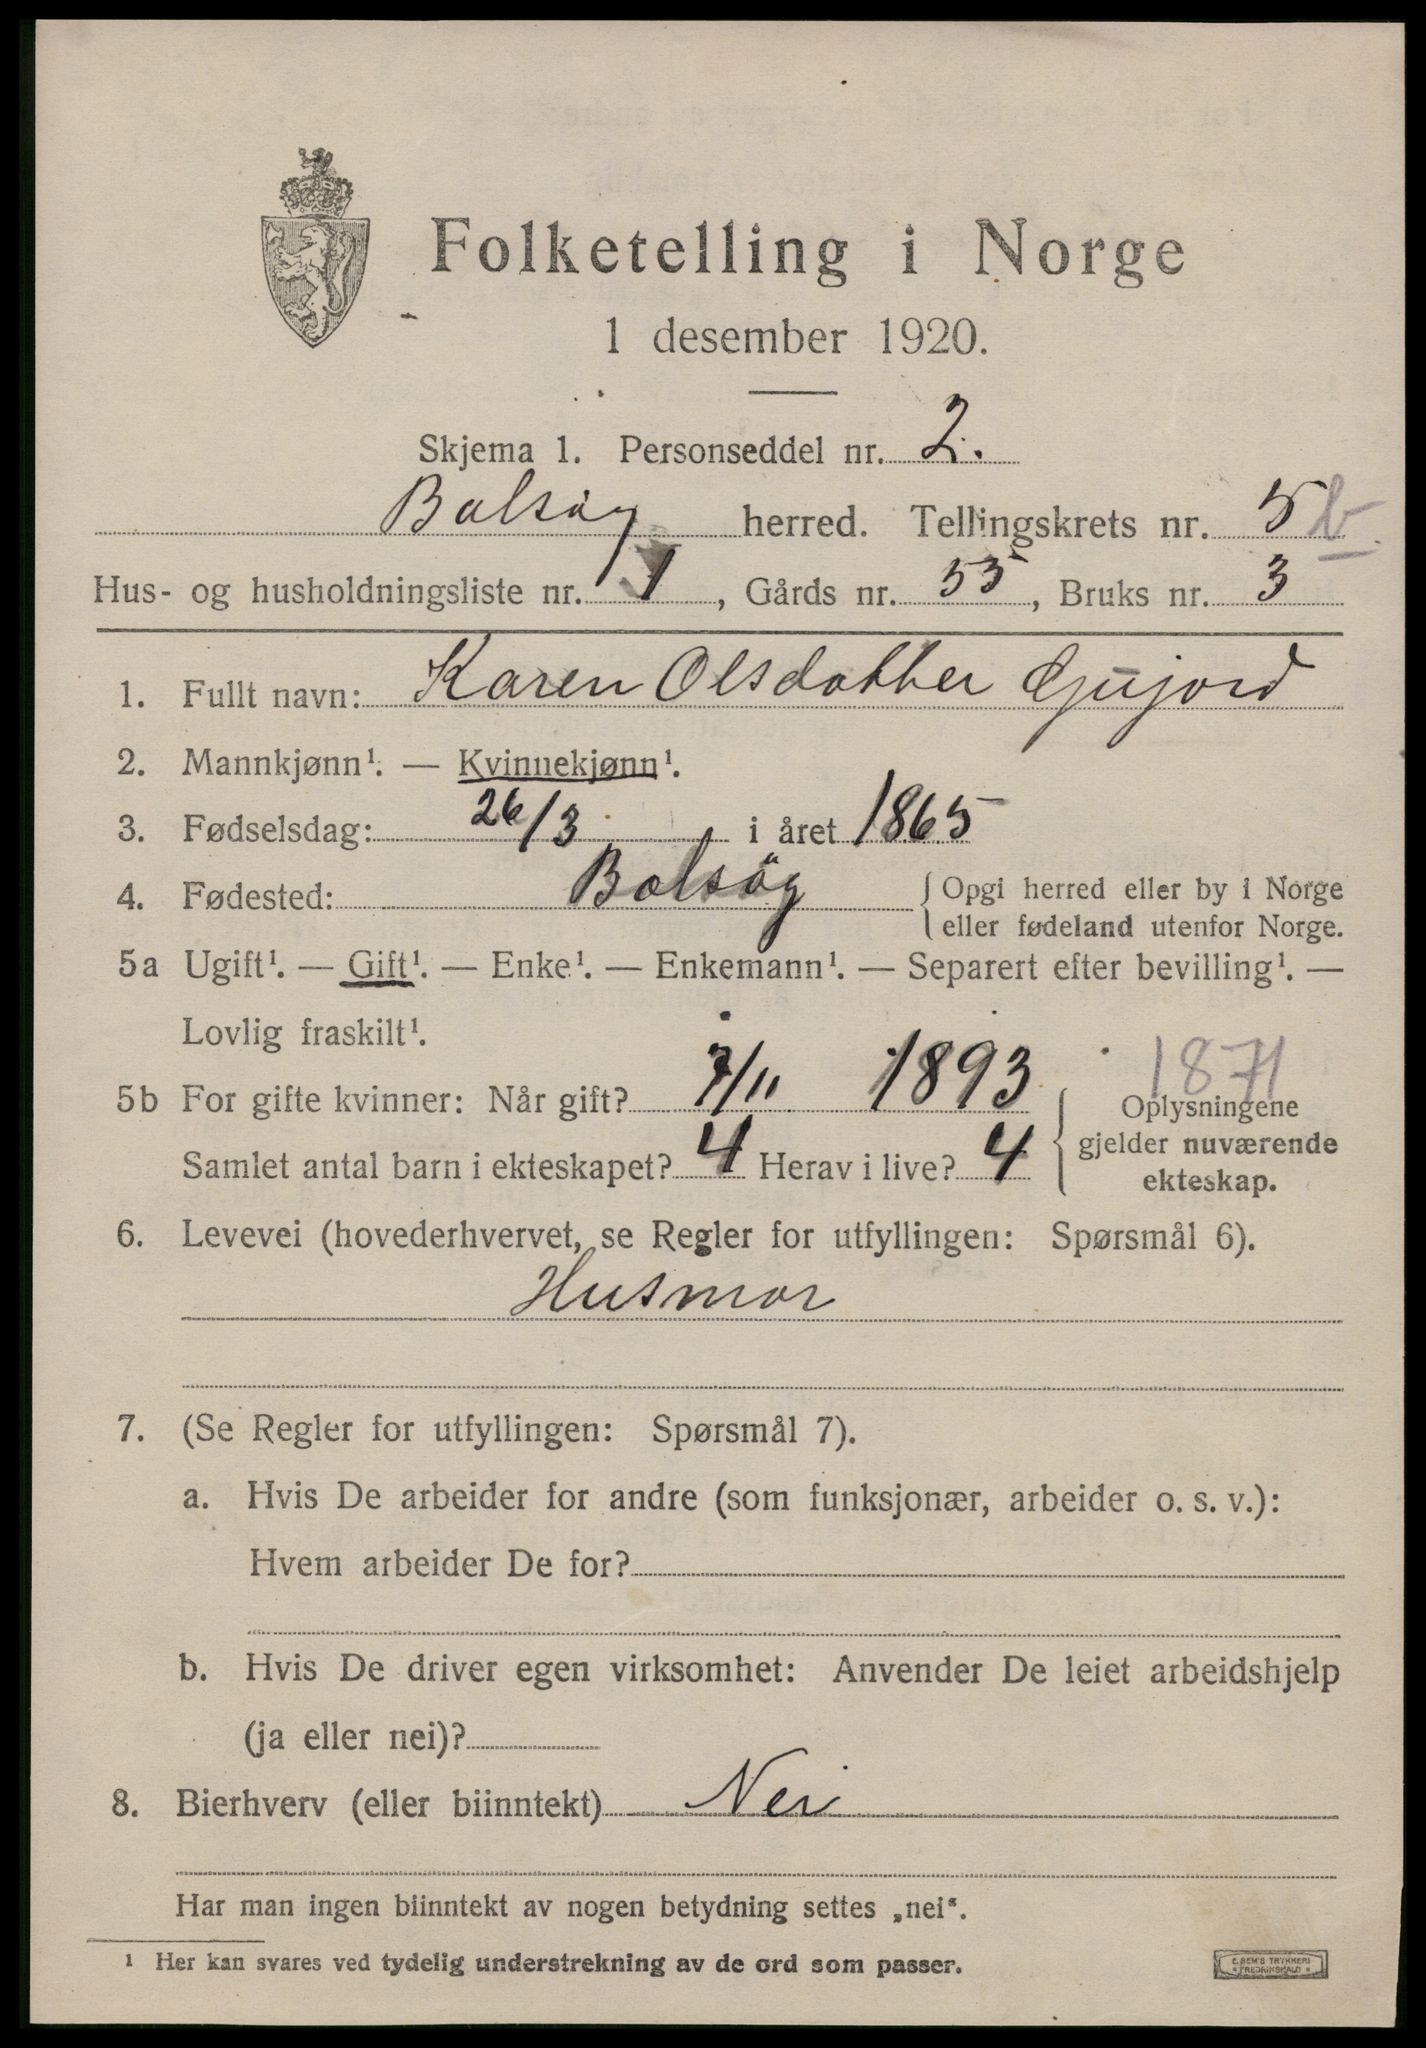 Folketelling i Norge
1 desember 1920.
Skjema 1. Personseddel nr. 2.
Bolsøy herred. Tellingskrets nr. 5 b
Hus- og husholdningsliste nr. 1, Gårds nr. 55, Bruks nr. 3
1. Fullt navn: Karen Olsdatter Gujord
2. Mannkjønn¹. — Kvinnekjønn¹.
3. Fødselsdag: 26/3 i året 1865
4. Fødested: Bolsöy { Opgi herred eller by i Norge
eller fødeland utenfor Norge.
5a Ugift¹. — Gift¹. — Enke¹. — Enkemann¹. — Separert efter bevilling¹. —
Lovlig fraskilt¹.
1871
5b For gifte kvinner: Når gift? 7/11 1893 { Oplysningene
gjelder nuværende
Samlet antal barn i ekteskapet? 4 Herav i live? 4
ekteskap.
6. Levevei (hovederhvervet, se Regler for utfyllingen: Spørsmål 6).
Husmor
7. (Se Regler for utfyllingen: Spørsmål 7).
a. Hvis De arbeider for andre (som funksjonær, arbeider o. s. v.):
Hvem arbeider De for?
b. Hvis De driver egen virksomhet: Anvender De leiet arbeidshjelp
(ja eller nei)?
8. Bierhverv (eller biinntekt) Nei
Har man ingen biinntekt av nogen betydning settes „nei“.
¹ Her kan svares ved tydelig understrekning av de ord som passer.
E. SEM'S TRYKKERI
FREDRIKSHALD